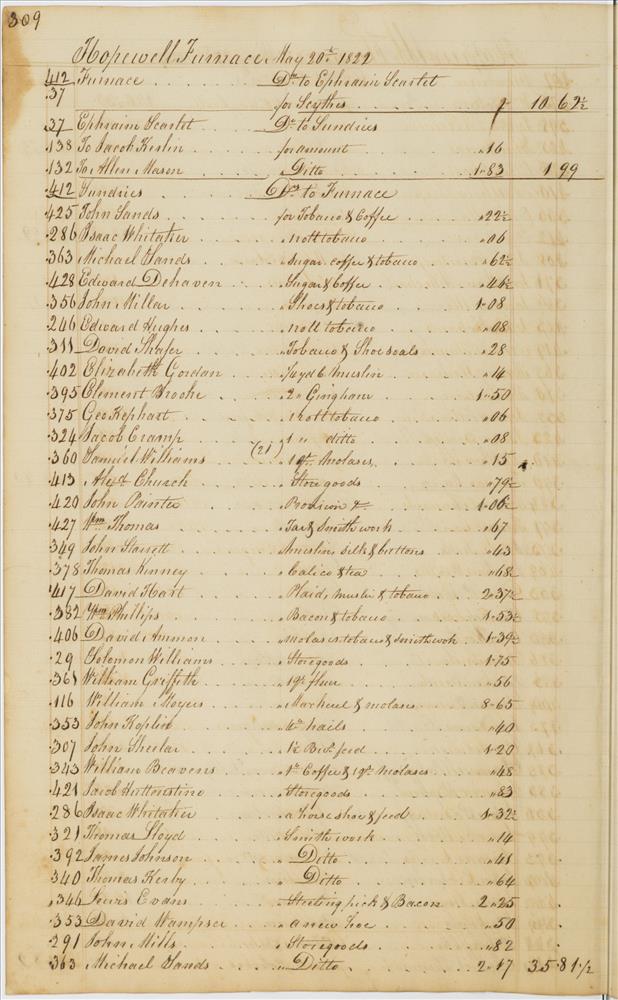 309
Hopewell Furnace May 20th 1822
412 Furnace Dr to Ephraim Scarlet
37 for Scythes 10 62½
37 Ephraim Scarlet Dr to Sundries
138 To Jacob Kerlin for amount " 16
132 To Allen Mason " Ditto 1-83 1 99
412 Sundries Drs to Furnace
425 John Sands for Tobacco & Coffee " 22½
286 Isaac Whitaker " roll tobacco " 06
363 Michael Sands " Sugar coffee & tobacco " 62½
428 Edward Dehaven " Sugar & Coffee " 44½
356 John Millar " Shoes & tobacco 1-08
246 Edward Hughes " roll tobacco " 08
311 David Shafer " Tobacco & Shoe soals " 28
402 Elizabeth Gordan yd muslin " 14
395 Clement Brooke 2 " Gingham 1-50
375 Geo Kephart " roll tobacco " 06
324 Jacob Cramp " 1 " ditto " 08
360 Samuel Williams (21) " 1 qt. Molases " 15
413 Alex Church " Storegoods " 79½
420 John Painter " Provision &c 1-06½
427 Wm Thomas " Tar & Smith work " 67
349 John Starrett " muslin silk & buttons " 43
378 Thomas Kinney " Calico & tea " 68½
417 David Hart " Plaid, muslin & tobacco 2-37½
382 Wm Phillips " Bacon & tobacco 1-53½
406 David Ammon " molases tobacco & smithwork 1-39½
29 Solomon Williams " Storegoods 1-75
361 William Griffith " 19 lb flour " 56
116 William Moyers " Mackerel & molases 8-65
353 John Koplin " 4 lb nails " 40
307 John Sheeler " Bus. feed 1-20
343 William Beavens " 1 lb Coffee & 1 qt. Molases " 48
421 Jacob " Storegoods " 83
286 Isaac Whitaker " a horse shoe & feed 1-32½
321 Thomas Lloyd " Smithwork " 14
392 James Johnson " Ditto " 41
340 Thomas Kerby " Ditto " 64
346 Lewis Evans " pick & Bacon 2-25
353 David Wampser " a new hoe " 50
291 John Mills " Storegoods " 82
363 Michael Sands " Ditto 2-17 35 81½